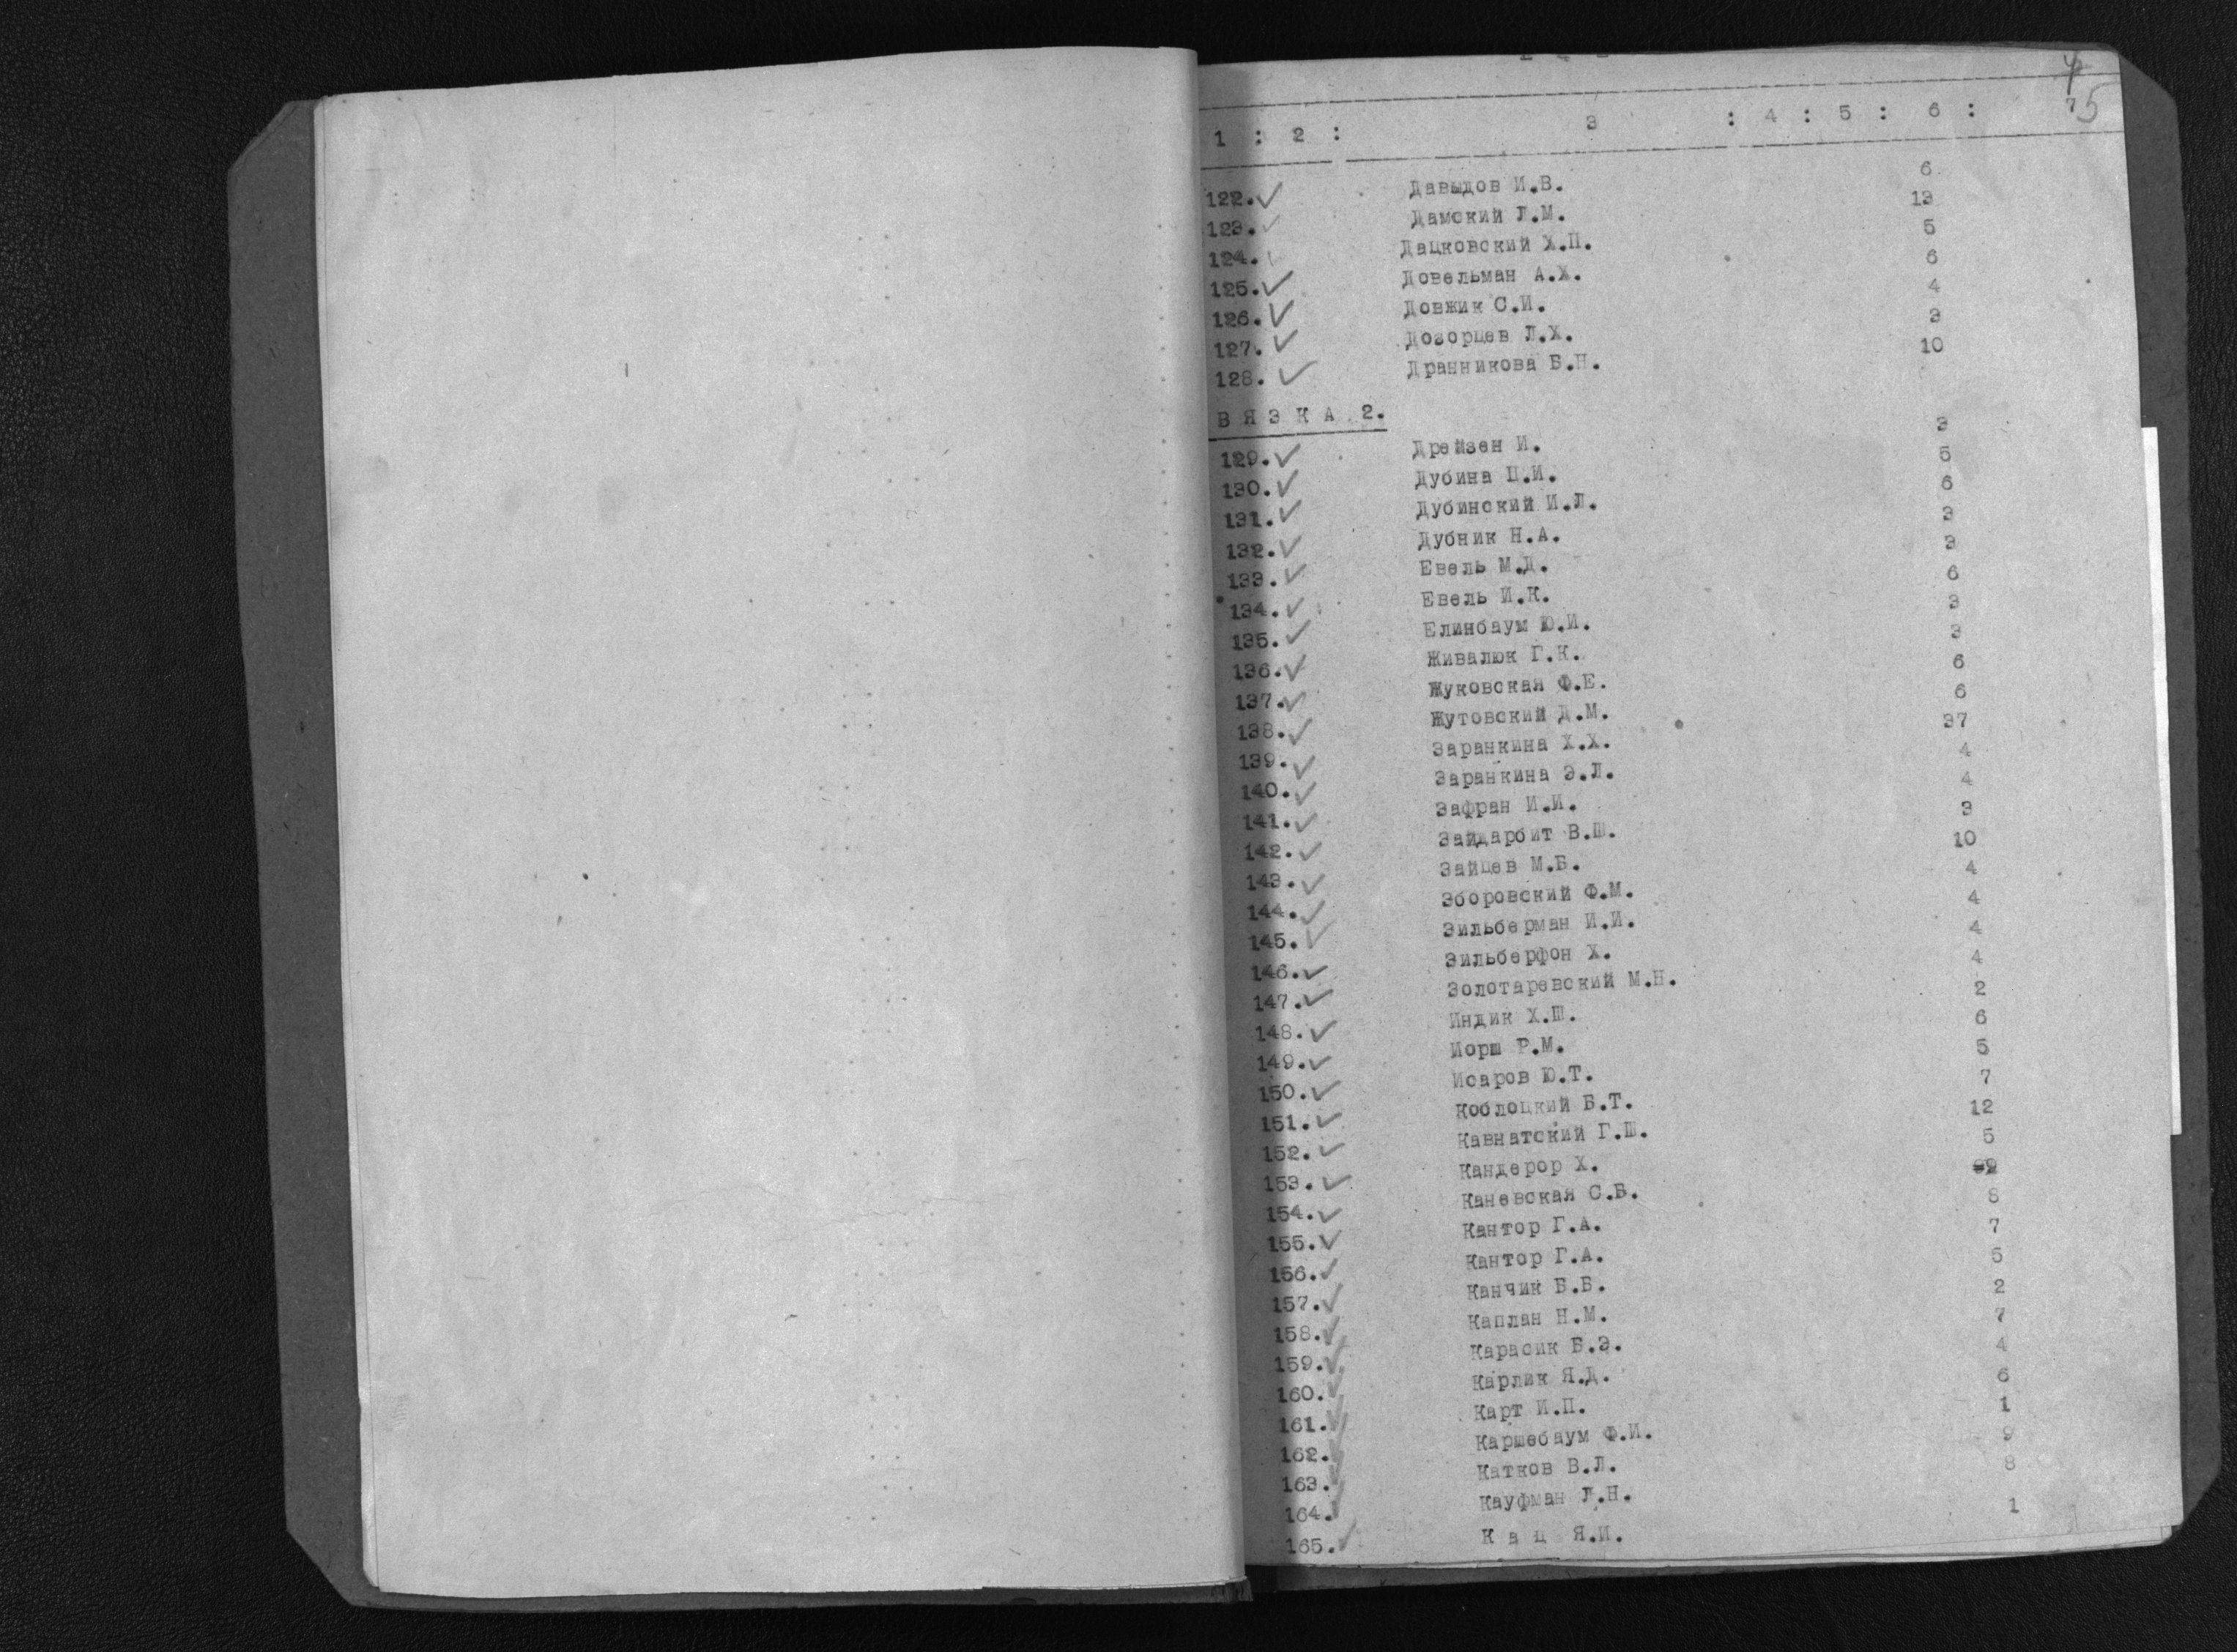 5
1 : 2 : 3 : 4 : 5 : 6 : 7
122. ✓ Давыдов И.В. 6
123. ✓ Дамский Л.М. 13
124. Дацковский Х.П. 5
125. ✓ Довельман А.Х. 6
126. ✓ Довжик С.И. 4
127. ✓ Дозорцев Л.Х. 3
128. ✓ Дранникова Б.Н. 10
В Я З К А 2.
129. ✓ Дрейзен И. 3
130. ✓ Дубина Ц.И. 5
131. ✓ Дубинский И.Л. 6
132. ✓ Дубник Н.А. 3
133. ✓ Евель М.Д. 3
134. ✓ Евель И.К. 6
135. ✓ Елинбаум Ю.И. 3
136. ✓ Живалюк Г.К. 3
137. ✓ Жуковская Ф.Е. 6
138. ✓ Жутовский Д.М. 6
139. ✓ Заранкина Х.Х. 37
140. ✓ Заранкина Э.Л. 4
141. ✓ Зафран И.И. 4
142. ✓ Зайдарбит В.Ш. 3
143. ✓ Зайцев М.Б. 10
144. ✓ Зборовский Ф.М. 4
145. ✓ Зильберман И.И. 4
146. ✓ Зильберфон Х. 4
147. ✓ Золотаревский М.Н. 4
148. ✓ Индик Х.Ш. 2
149. ✓ Иорш Р.М. 6
150. ✓ Исаров Ю.Т. 5
151. ✓ Коблоцкий Б.Т. 7
152. ✓ Кавнатский Г.Ш. 12
153. ✓ Кандерор Х. 5
154. ✓ Каневская С.Б.
155. ✓ Кантор Г.А. 8
156. ✓ Кантор Г.А. 7
157. ✓ Канчик Б.Б. 5
158. ✓ Каплан Н.М. 2
159. ✓ Карасик Б.Э. 7
160. ✓ Карлик Я.Д. 4
161. ✓ Карт И.П. 6
162. ✓ Каршебаум Ф.И. 1
163. ✓ Катков В.Л. 9
164. ✓ Кауфман Л.Н. 8
165. ✓ К а ц Я.И. 1